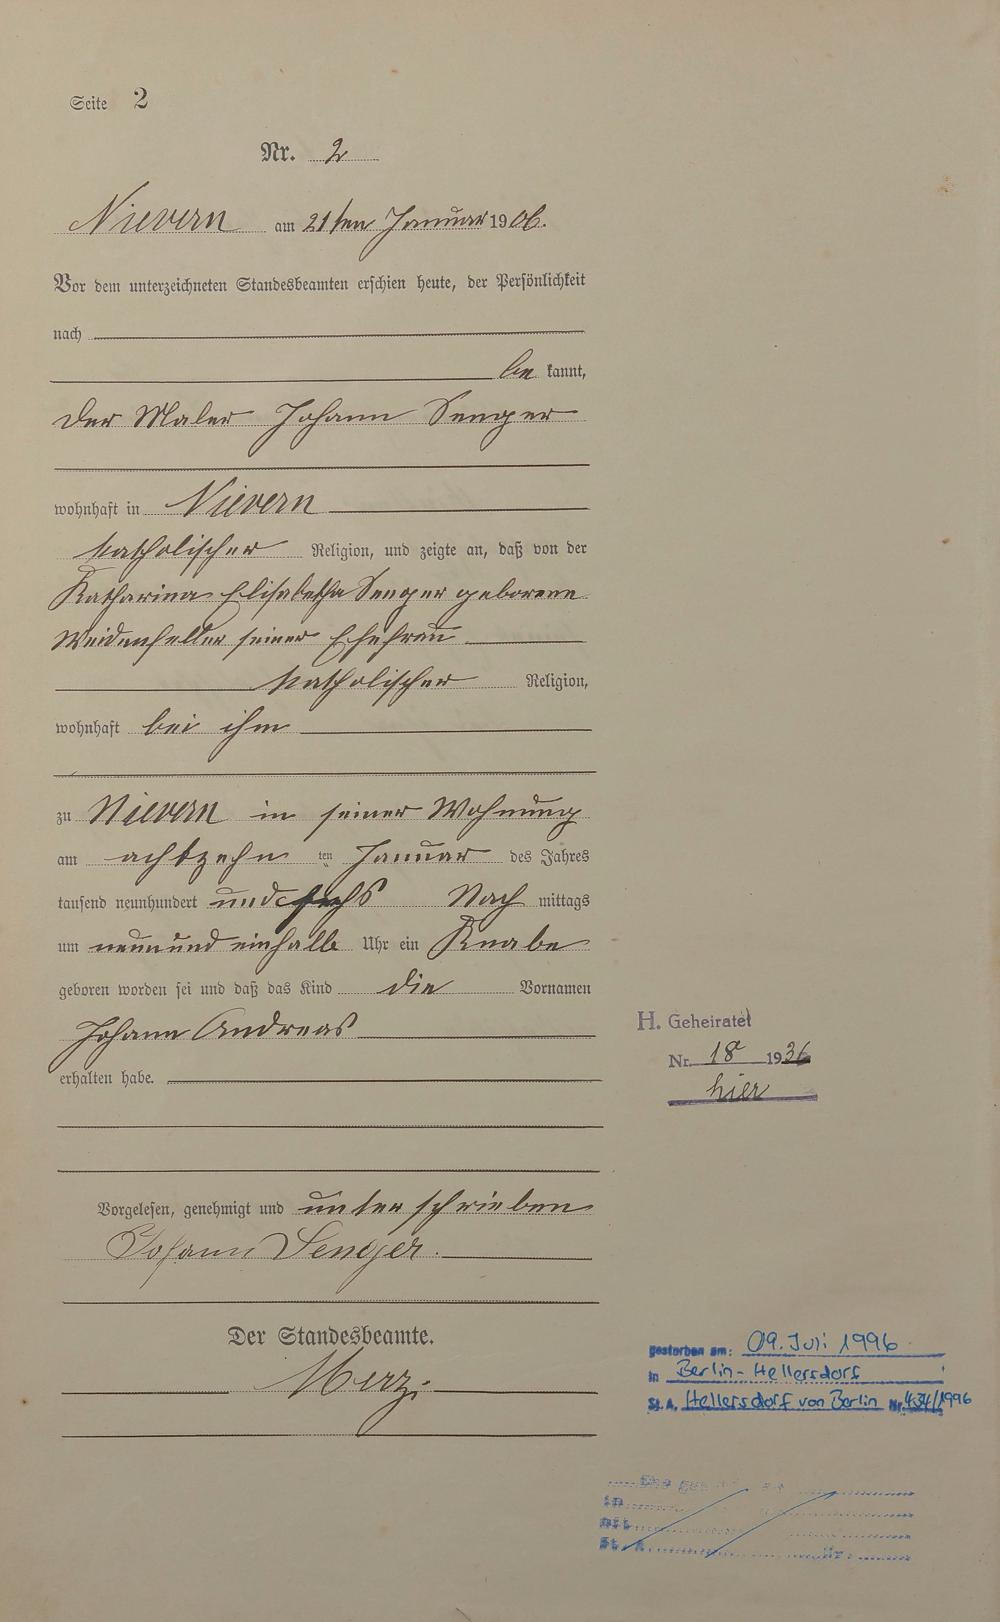 Seite 2
Nr. 2
Nievern am 21ten Januar 1906.
Vor dem unterzeichneten Standesbeamten erschien heute, der Persönlichkeit
nach
be kannt,
der Maler Johann Senger
wohnhaft in Nievern
katholischer Religion, und zeigte an, daß von der
Katharina Elisabetha Senger geborene
Weidenfeller seiner Ehefrau
katholischer Religion,
wohnhaft bei ihm
zu Nievern in seiner Wohnung
am achtzehn ten Januar des Jahres
tausend neunhundert und sechs Nach mittags
um neun und einhalb Uhr ein Knabe
geboren worden sei und daß das Kind die Vornamen
Johann Andreas
erhalten habe.
H. Geheiratet
Nr. 18 1936
hier
Vorgelesen, genehmigt und unterschrieben
Johann Senger.
Der Standesbeamte.
Merz
gestorben am: 09. Juli 1996
in Berlin-Hellersdorf
St. A. Hellersdorf von Berlin Nr. 434/1996
Ehe
in
mit
St. A. Nr.